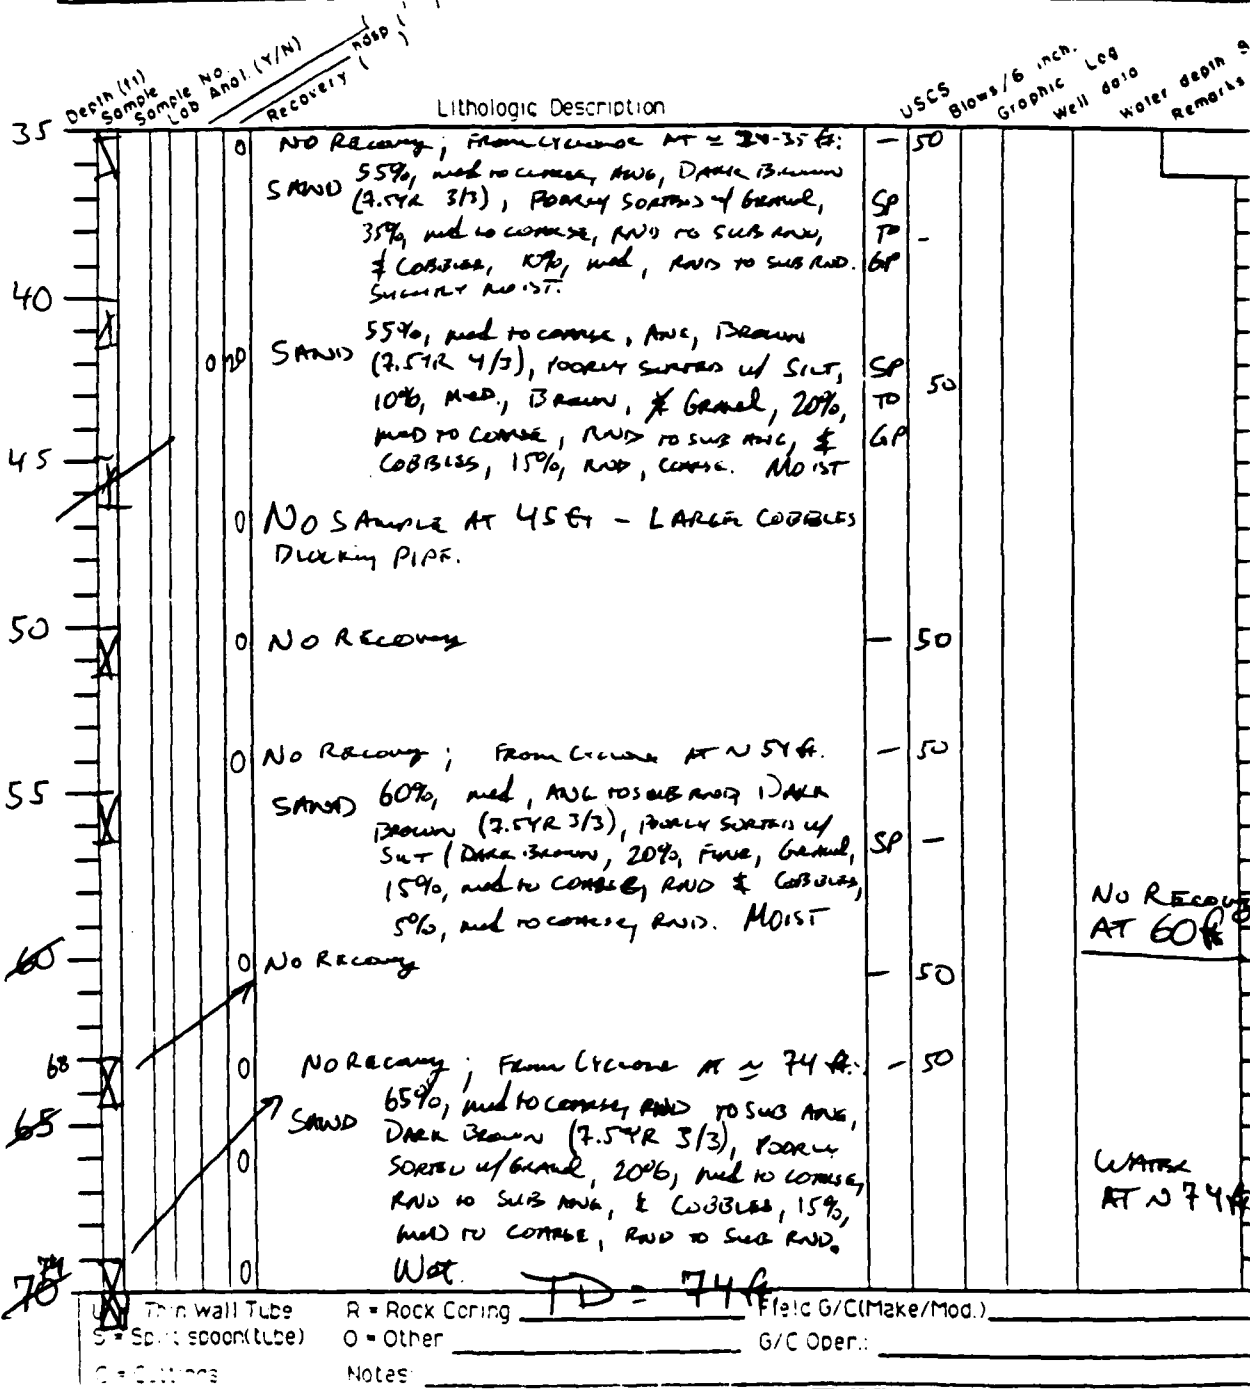 Depth (ft)
Sample
Sample No.
Lab Anal. (Y/N)
Recovery (
hdsp (
Lithologic Description
USCS
Blows/6 inch.
Graphic Log
Well data
Water depth
Remarks
35
0 NO Recovery; From Cyclone AT ≃ 35 ft: - 50
SAND 55%, med to coarse, ANG, DARK Brown
(7.5YR 3/3), Poorly SORTED w/ Gravel, SP
35%, med to COARSE, RND TO SUB RND, TO -
& COBBLES, 10%, med, RND TO SUB RND. GP
SLIGHTLY MOIST.
40
SAND 55%, med to coarse, ANG, Brown
0 20 (7.5YR 4/3), POORLY SORTED w/ SILT, SP
10%, MED., Brown, & Gravel, 20%, TO 50
MED TO COARSE, RND TO SUB ANG, & GP
COBBLES, 15%, RND, COARSE. MOIST
45
0 NO SAMPLE AT 45 ft - LARGE COBBLES
Blocking PIPE.
50
0 NO RECOVERY - 50
0 NO Recovery; From Cyclone AT ~ 54 ft. - 50
55
SAND 60%, med, ANG TO SUB RND, DARK
Brown (7.5YR 3/3), Poorly SORTED w/
SILT (DARK Brown, 20%, FINE, Gravel, SP -
15%, med to COARSE, RND & COBBLES,
5%, med to coarse, RND. MOIST
NO RECOVE
AT 60 ft
60
0 NO Recovery - 50
68
0 NO Recovery; From Cyclone AT ≃ 74 ft: - 50
65
SAND 65%, med to coarse, RND TO SUB ANG,
DARK Brown (7.5YR 3/3), POORLY
0 SORTED w/ Gravel, 20%, med to COARSE,
RND to SUB ANG, & COBBLES, 15%,
MED TO COARSE, RND TO SUB RND.
WATER
AT ~ 74 ft
0 Wet.
74
70
TD = 74 ft
Thin Wall Tube R = Rock Coring Field G/C(Make/Mod.)
S = Split spoon(tube) O = Other G/C Oper.:
C = Cuttings Notes